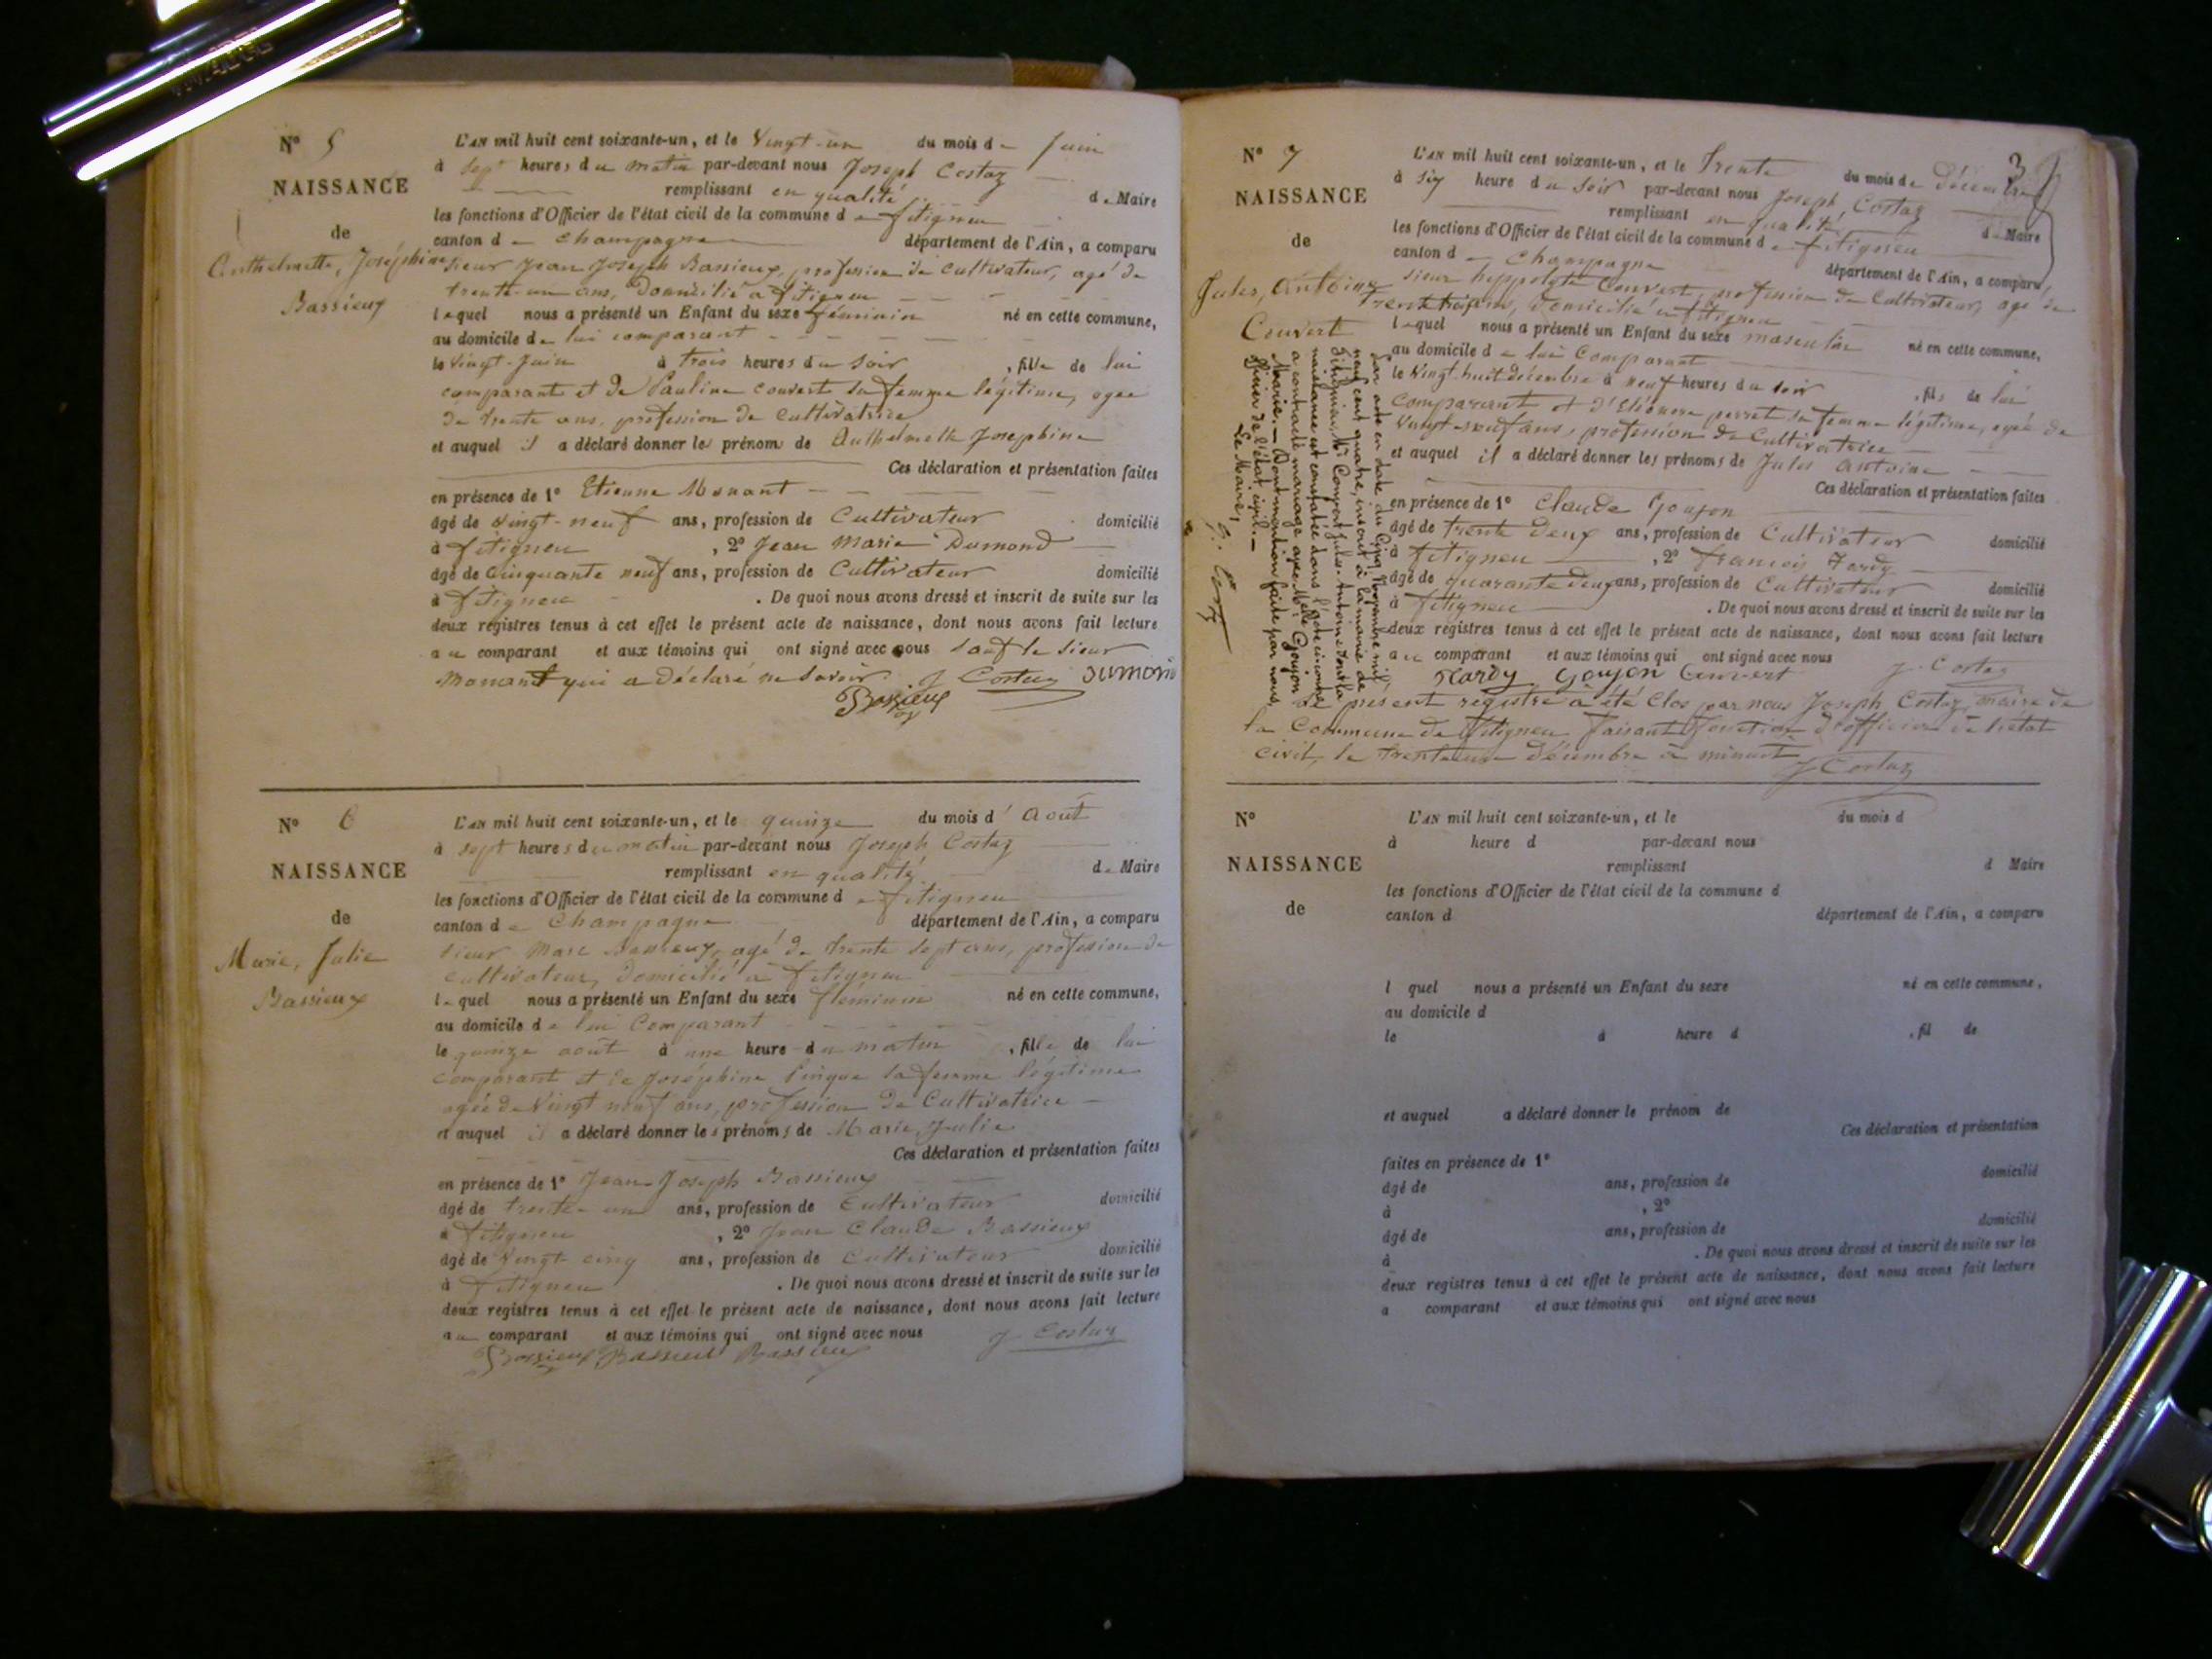 N° 5
NAISSANCE
de
Anthelmette, Joséphine
Bassieux
L'AN mil huit cent soixante-un, et le Vingt-un du mois de Juin
à Sept heures du matin par-devant nous Joseph Costaz
remplissant en qualité de Maire
les fonctions d'Officier de l'état civil de la commune de fitigneu
canton de Champagne département de l'Ain, a comparu
sieur Jean Joseph Bassieux, profession de cultivateur, agé de
trente-un ans, domicilié à fitigneu
lequel nous a présenté un Enfant du sexe féminin né en cette commune,
au domicile de lui comparant
le Vingt-Juin à trois heures du soir, fille de lui
comparant et de Pauline couvert sa femme légitime, agee
de trente ans, profession de cultivatrice
et auquel il a déclaré donner les prénom de Anthelmette Josephine
Ces déclaration et présentation faites
en présence de 1° Etienne Monant
âgé de vingt-neuf ans, profession de Cultivateur domicilié
à fitigneu, 2° Jean Marie Dumond
âgé de Cinquante neuf ans, profession de Cultivateur domicilié
à fitigneu. De quoi nous avons dressé et inscrit de suite sur les
deux registres tenus à cet effet le présent acte de naissance, dont nous avons fait lecture
au comparant et aux témoins qui ont signé avec nous sauf le sieur
Monant qui a déclaré ne savoir J Costaz DUMOND
Bassieux
N° 6
NAISSANCE
de
Marie, Julie
Bassieux
L'AN mil huit cent soixante-un, et le quinze du mois d'Août
à sept heures du matin par-devant nous Joseph Costaz
remplissant en qualité de Maire
les fonctions d'Officier de l'état civil de la commune de fitigneu
canton de Champagne département de l'Ain, a comparu
sieur Marc Bassieux, agé de trente sept ans, profession de
cultivateur, domicilié à fitigneu
lequel nous a présenté un Enfant du sexe féminin né en cette commune,
au domicile de lui Comparant
le quinze août à une heure du matin, fille de lui
comparant et de Joséphine sa femme légitime
agée de Vingt neuf ans, profession de Cultivatrice
et auquel il a déclaré donner les prénoms de Marie, Julie
Ces déclaration et présentation faites
en présence de 1° Jean-Joseph Bassieux
âgé de trente-un ans, profession de Cultivateur domicilié
à fitigneu, 2° Jean Claude Bassieux
âgé de Vingt-cinq ans, profession de Cultivateur domicilié
à fitigneu. De quoi nous avons dressé et inscrit de suite sur les
deux registres tenus à cet effet le présent acte de naissance, dont nous avons fait lecture
au comparant et aux témoins qui ont signé avec nous J Costaz
Bassieux Bassieux Bassieux
3
N° 7
NAISSANCE
de
Jules, Antoine
Couvert
L'AN mil huit cent soixante-un, et le Trente du mois de décembre
à six heure du soir par-devant nous Joseph Costaz
remplissant en qualité de Maire
les fonctions d'Officier de l'état civil de la commune de fitigneu
canton de Champagne département de l'Ain, a comparu
sieur hyppolyte Couvert, profession de Cultivateur, agé de
trente trois ans, domicilié à fitigneu
lequel nous a présenté un Enfant du sexe masculin né en cette commune,
au domicile de lui Comparant
le Vingt-huit décembre à neuf heures du soir, fils de lui
comparant et d'Eléonore perret sa femme légitime, agée de
Vingt-neuf ans, profession de Cultivatrice
et auquel il a déclaré donner les prénoms de Jules Antoine
Ces déclaration et présentation faites
en présence de 1° Claude Goujon
âgé de trente deux ans, profession de Cultivateur domicilié
à fitigneu, 2° francois Tardy
âgé de quarante deux ans, profession de Cultivateur domicilié
à fitigneu. De quoi nous avons dressé et inscrit de suite sur les
deux registres tenus à cet effet le présent acte de naissance, dont nous avons fait lecture
au comparant et aux témoins qui ont signé avec nous
Tardy Goujon Couvert J. Costaz
Le présent registre a été Clos par nous Joseph Costaz, maire de
la Commune de fitigneu faisant fonction d'officier de l'état
civil, le trente une décembre à minuit
J Costaz
Par acte en date du Cinq Novembre mil
neuf cent quatre, inscrit à la mairie de
fitignieu, Mr Couvert Jules-Antoine dont la
naissance est constatée dans l'acte ci-contre,
a contracté mariage avec Melle Goujon
Marie.- Dont mention faite par nous,
officier de l'état civil.-
Le Maire,
N°
NAISSANCE
de
L'AN mil huit cent soixante-un, et le du mois d
à heure d par-devant nous
remplissant d Maire
les fonctions d'Officier de l'état civil de la commune d
canton d département de l'Ain, a comparu
l quel nous a présenté un Enfant du sexe né en cette commune,
au domicile d
le à heure d, fil de
et auquel a déclaré donner le prénom de
Ces déclaration et présentation
faites en présence de 1°
âgé de ans, profession de domicilié
à, 2°
âgé de ans, profession de domicilié
à. De quoi nous avons dressé et inscrit de suite sur les
deux registres tenus à cet effet le présent acte de naissance, dont nous avons fait lecture
a comparant et aux témoins qui ont signé avec nous